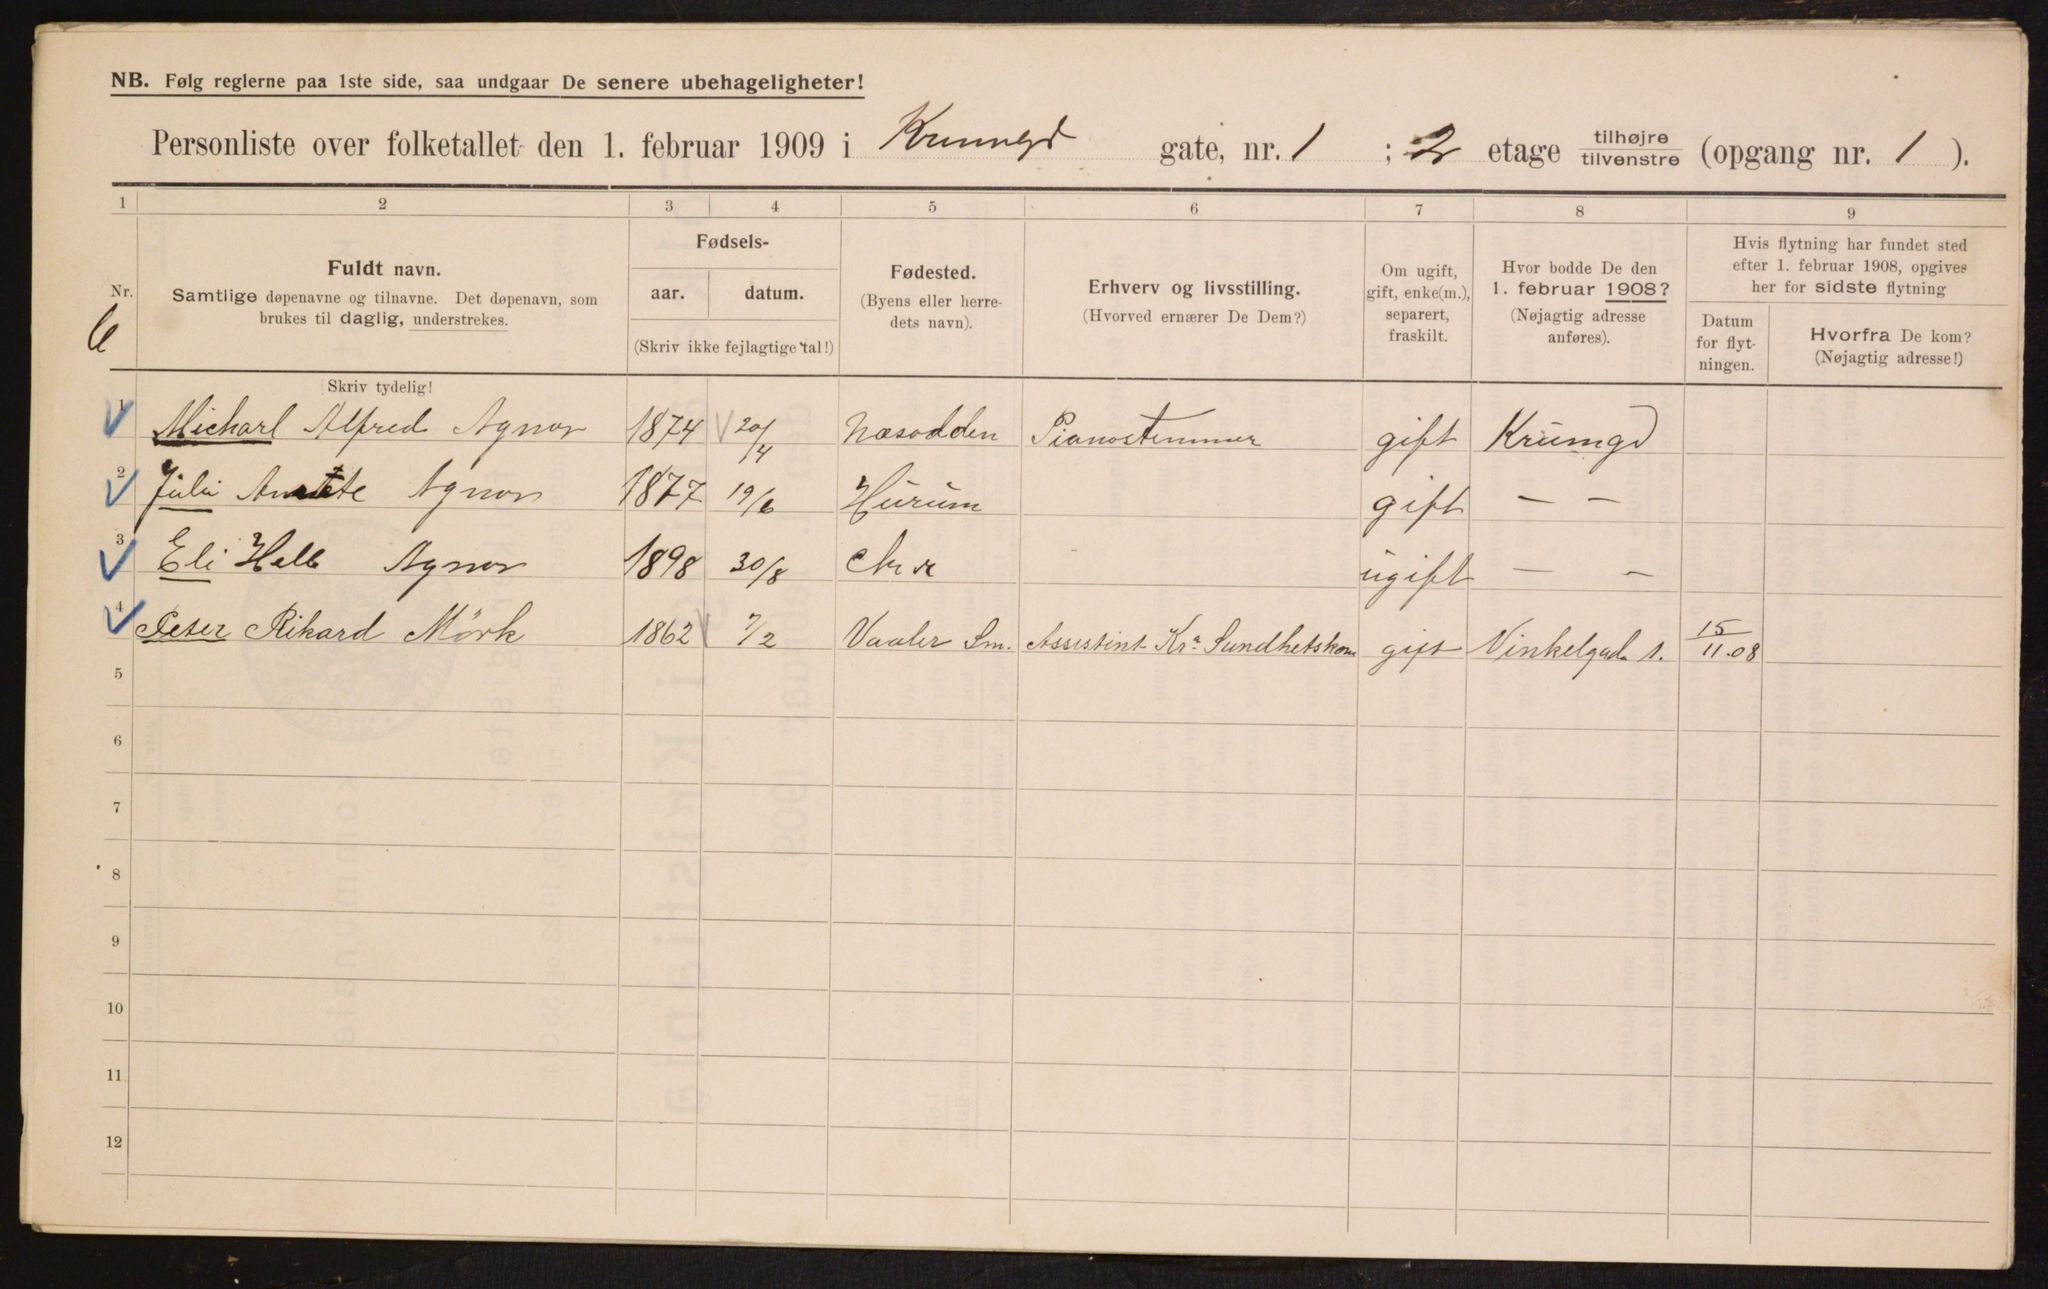 NB. Følg reglerne paa 1ste side, saa undgaar De senere ubehageligheter!
Personliste over folketallet den 1. februar 1909 i Krumgd gate, nr. 1 ; 2 etage tilhøjre/tilvenstre (opgang nr. 1 ).
1 2 3 4 5 6 7 8 9
Nr.
6
Fuldt navn.
Samtlige døpenavne og tilnavne. Det døpenavn, som
brukes til daglig, understrekes.
Skriv tydelig!
Fødsels-
aar. datum.
(Skriv ikke fejlagtige tal!)
Fødested.
(Byens eller herre-
dets navn).
Erhverv og livsstilling.
(Hvorved ernærer De Dem?)
Om ugift,
gift, enke(m.),
separert,
fraskilt.
Hvor bodde De den
1. februar 1908?
(Nøjagtig adresse
anføres).
Hvis flytning har fundet sted
efter 1. februar 1908, opgives
her for sidste flytning
Datum
for flyt-
ningen.
Hvorfra De kom?
(Nøjagtig adresse!)
1 Michael Alfred Agnor 1874 20/4 Næsodden Pianostemmer gift Krumgd
2 Juli Anette Agnor 1877 19/6 Hurum gift — —
3 Eli Agnor 1898 30/8 Chr a ugift — —
4 Peter Rikard Mörk 1862 7/2 Vaaler Sm. Assistint Kra Sundhetskom gift Vinkelgada 1. 15/11.08
5
6
7
8
9
10
11
12